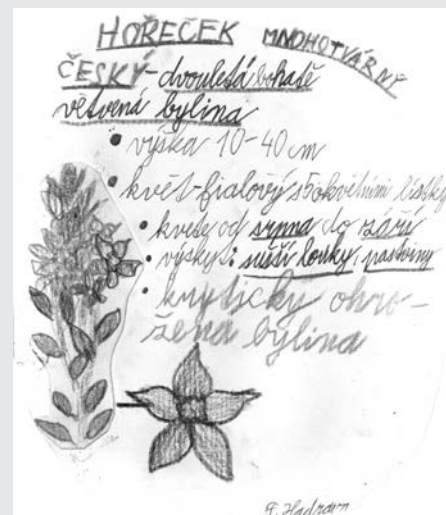 HOŘEČEK MNOHOTVÁRNÝ
ČESKÝ - dvouletá bohatě
větvená bylina
• výška 10-40 cm
• květ-fialový s 5 okvětními lístky
• kvete od srpna do září
• výskyt: sušší louky, pastviny
• kryticky ohro-
žená bylina